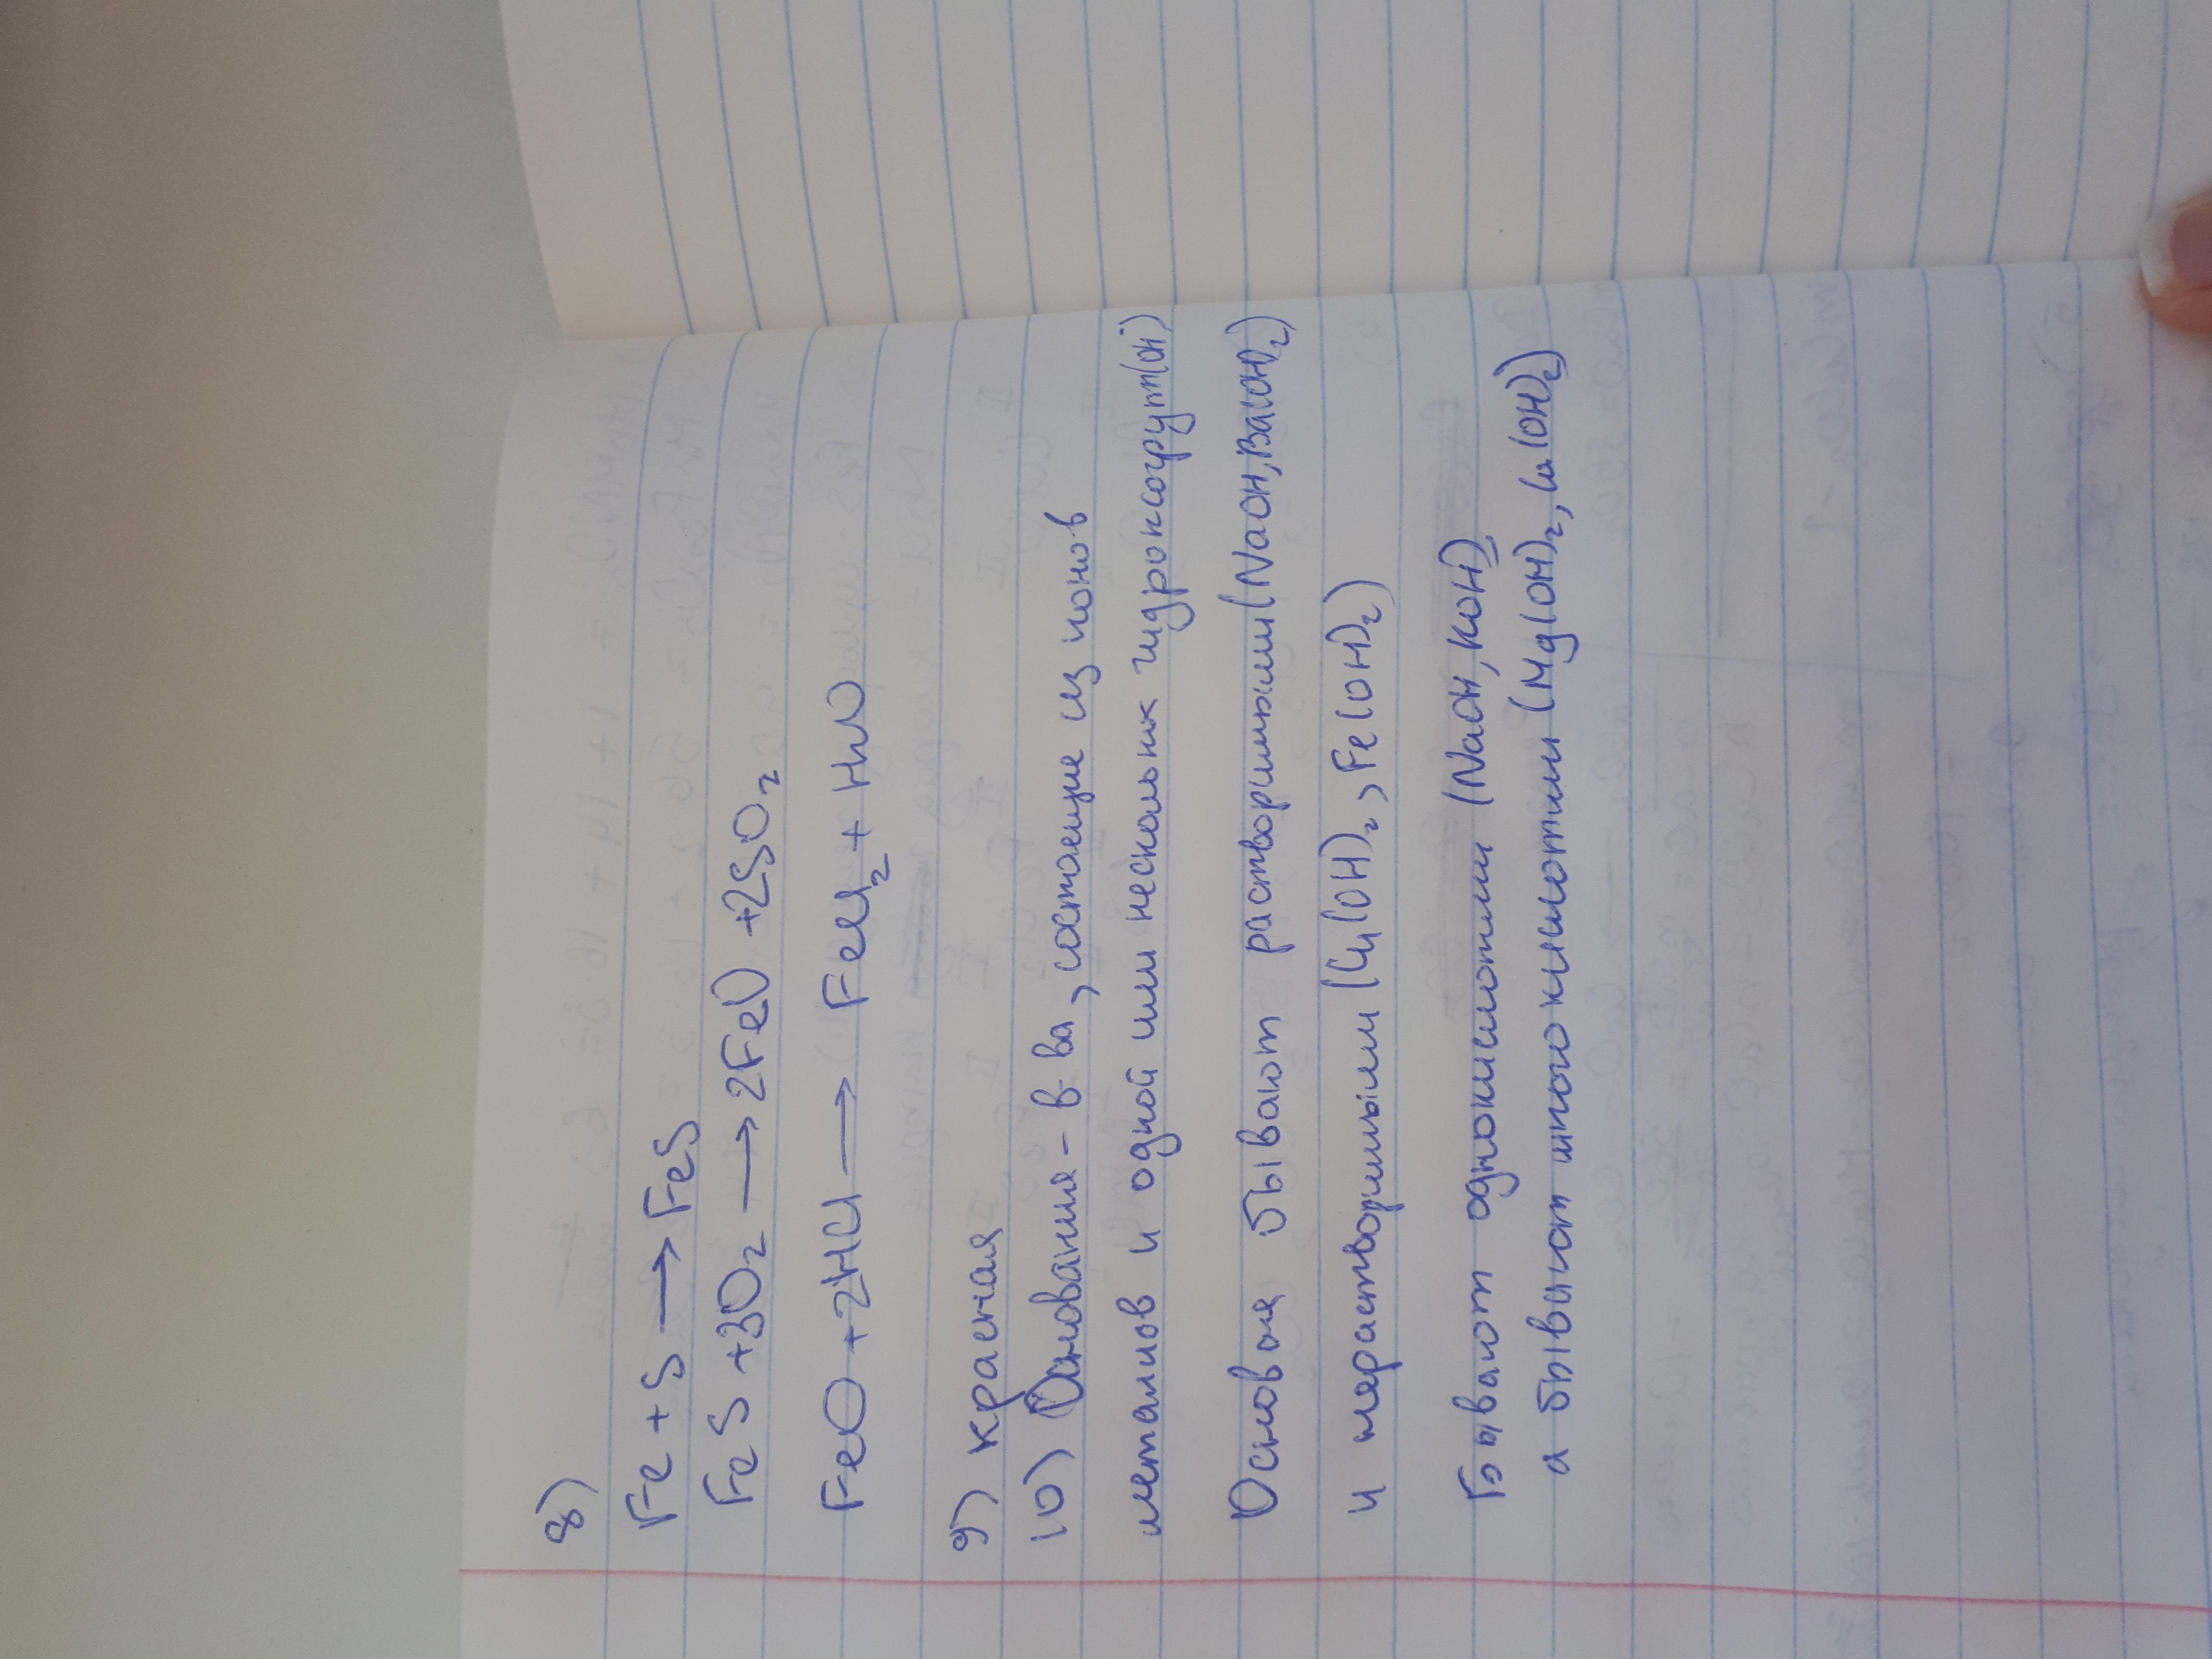 8)
Fe + S → FeS
FeS + 3O₂ → 2FeO + 2SO₂
FeO + 2HCl → FeCl₂ + H₂O
9) красная
10) Основания - в-ва, состоящие из ионов
металлов и одной или нескольких гидроксогрупп (OH)
Основая бывают растворимыми (NaOH, Ba(OH)₂)
и нерастворимыми (Cu(OH)₂, Fe(OH)₂)
Бывают однокислотими (NaOH, KOH)
а бывают многокислотими (Mg(OH)₂, Ca(OH)₂)